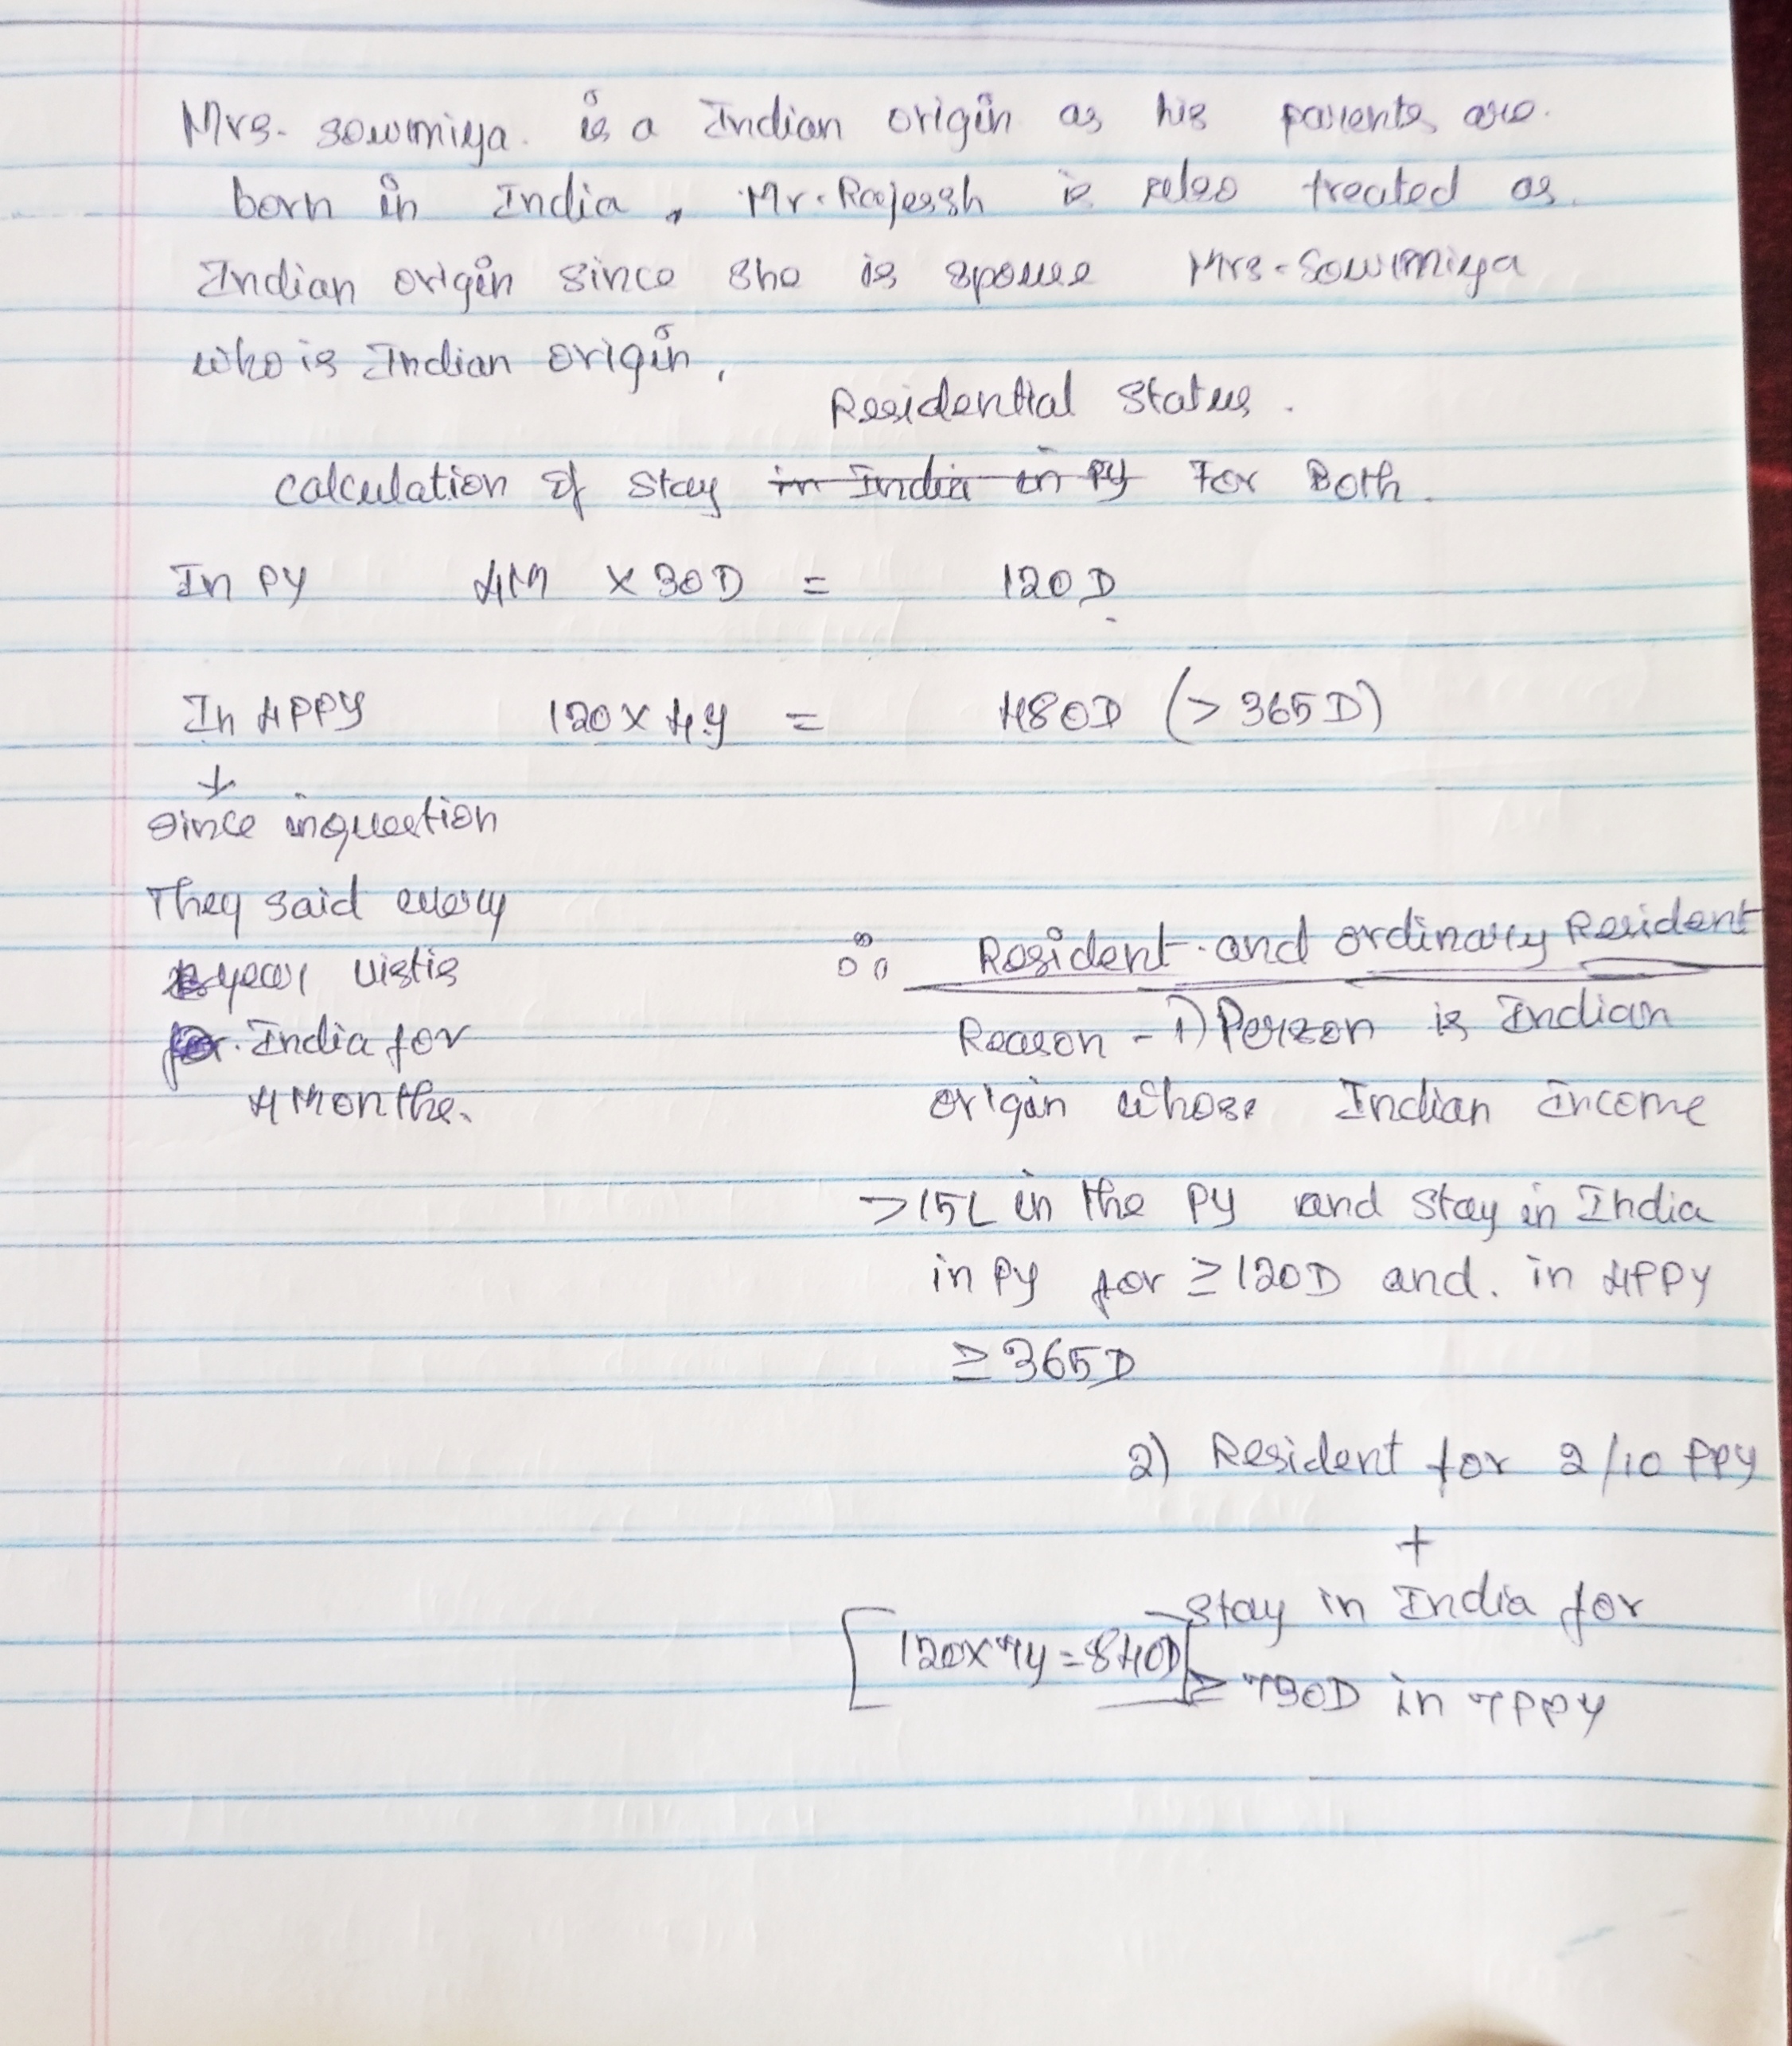 Mrs. Sowmiya. is a Indian origin as his parents are.
born in India, Mr. Rajessh is also treated as
Indian origin since she is spouse Mrs. Sowmiya
who is Indian origin,
Residential Status.
calculation of stay in India in PY For Both.
In PY 4M X 30D = 120D
In 4PPY 120 x 4y = 480D (> 365D)
since inquestion
They said every
year vistis
for. India for
4 Months.
∴ Resident and ordinary Resident
Reason - 1) Person is Indian
origin whose Indian income
>15L in the PY and stay in India
in PY for ≥ 120D and. in 4PPY
≥ 365D
2) Resident for 2/10 PPY
+
Stay in India for
[120x7y = 840D] ≥ 730D in 7PPY